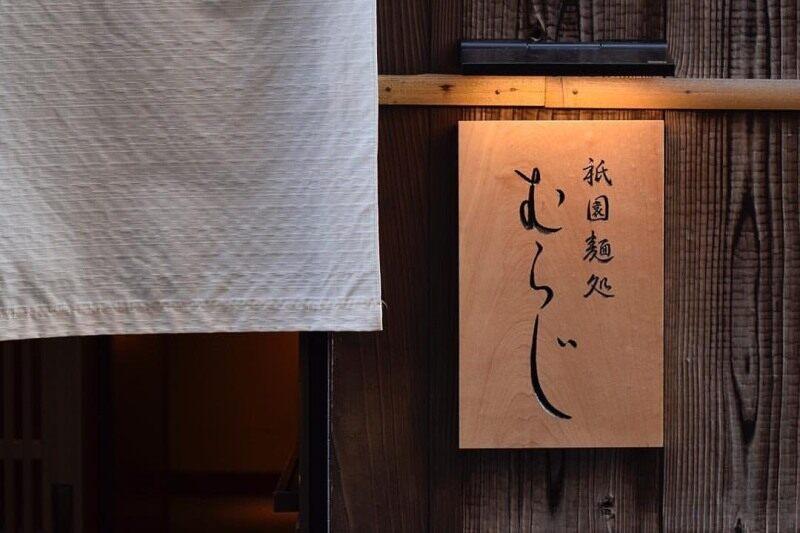 祇園麺処
むらじ